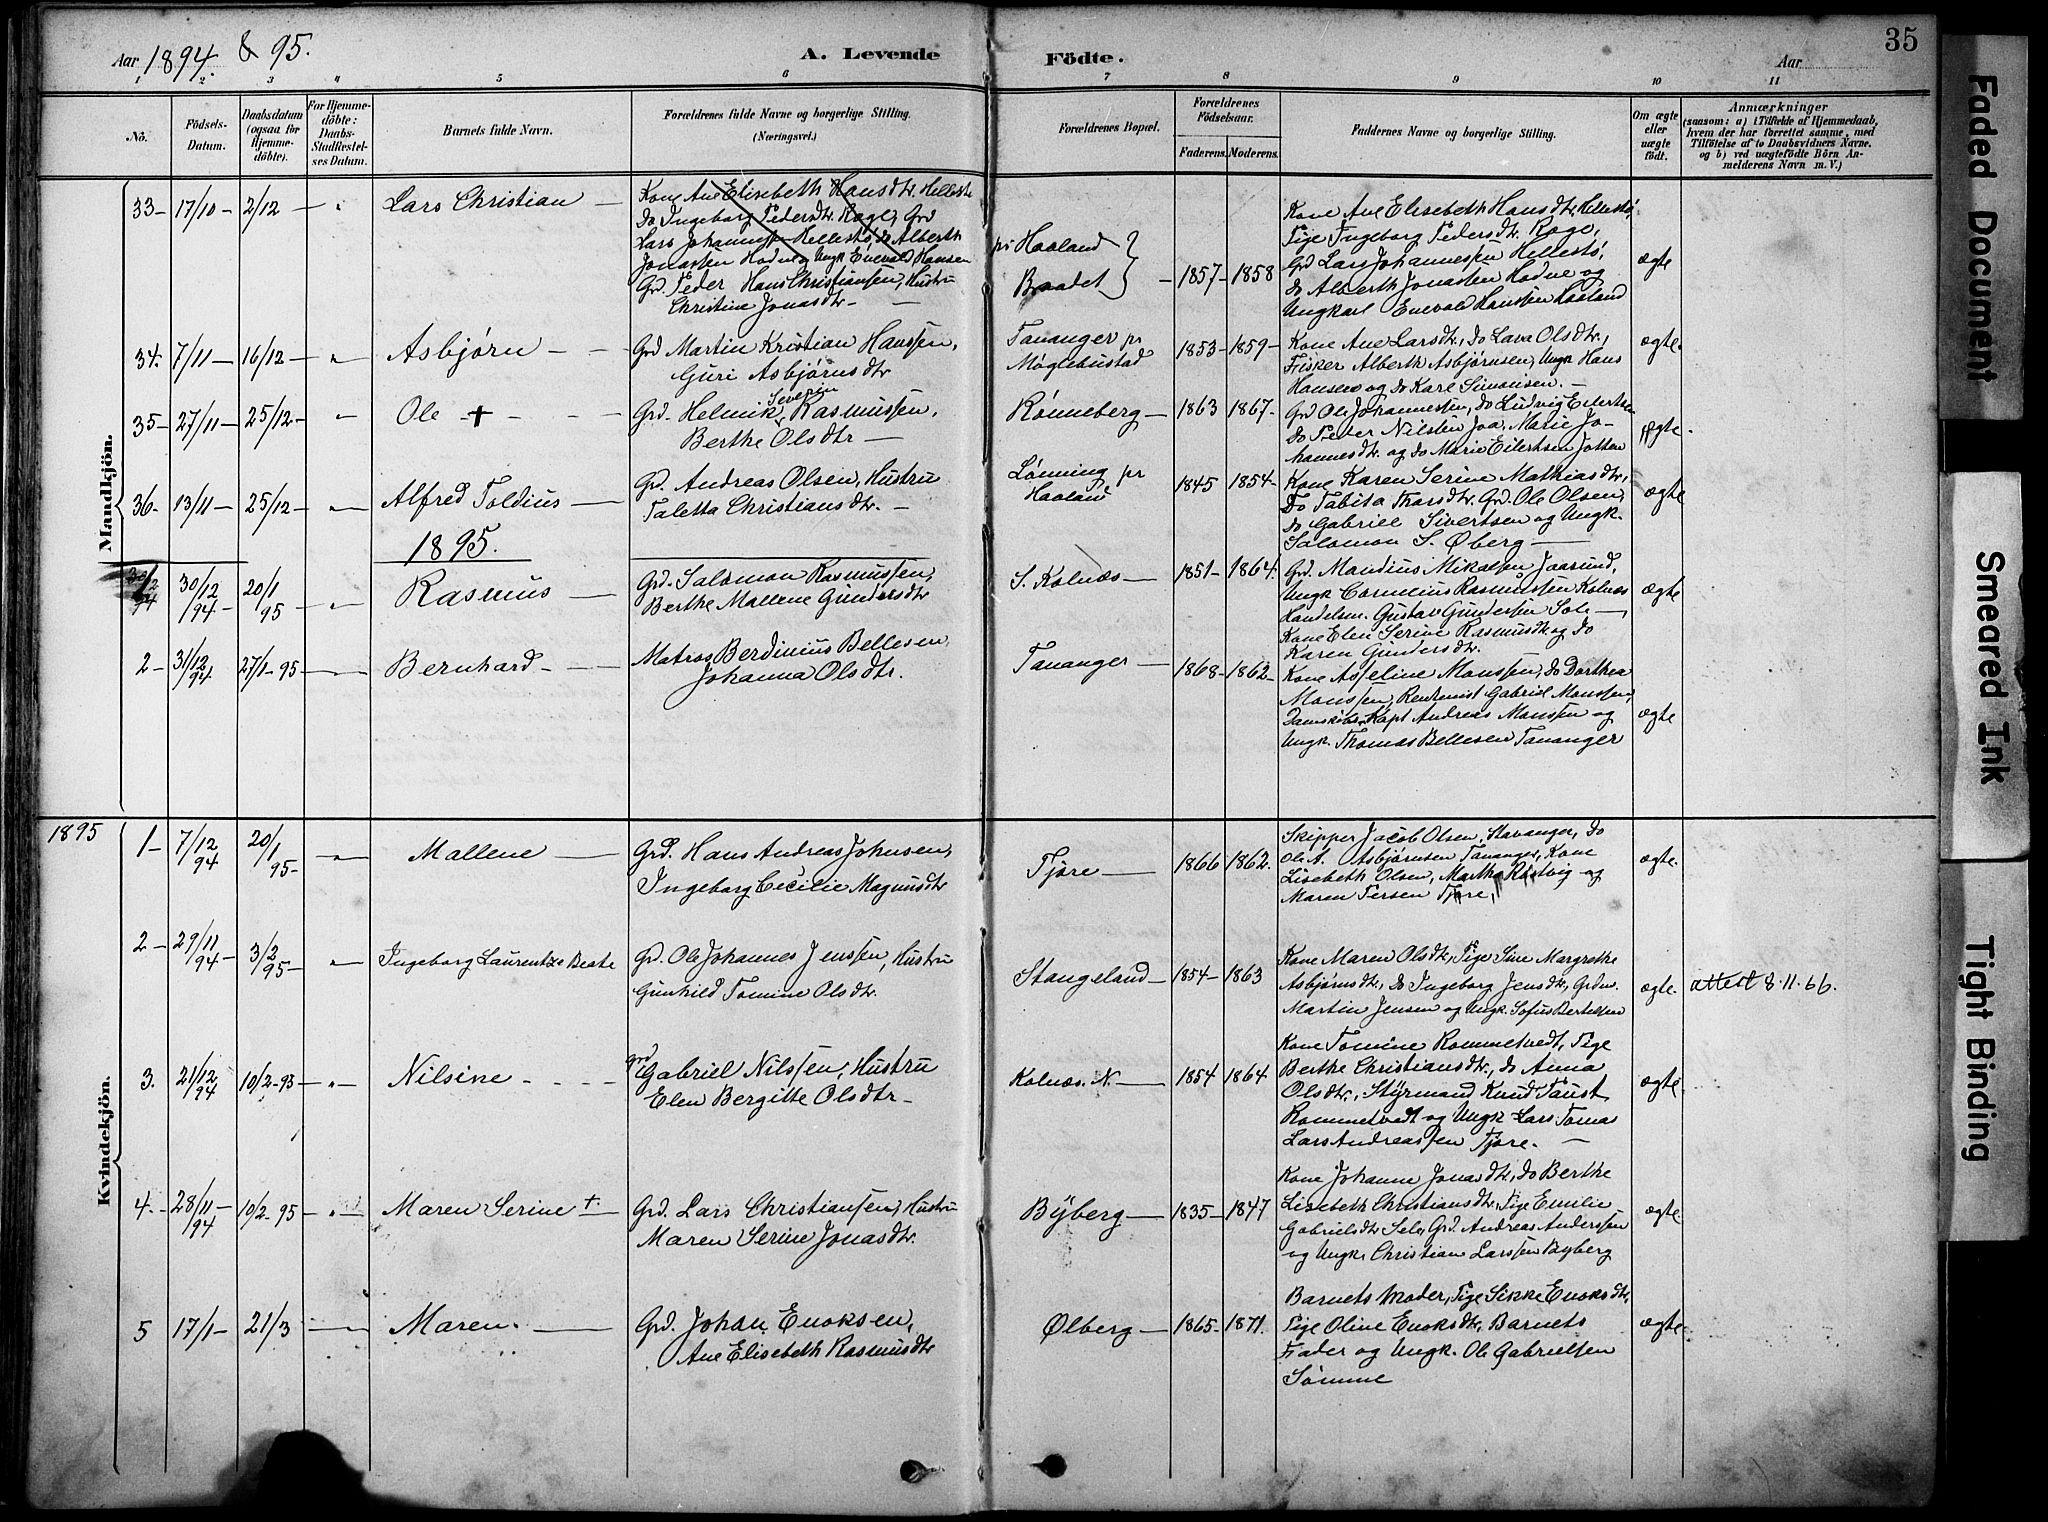 Aar 1894. & 95.
A. Levende
Fødte.
Aar
35
1 2 3 " 5 6 7 8 9 10 11
No.
Födsels-Datum.
Daabsdatum (ogsaa for Hjemme-döbte).
For Hjemme-döbte: Daabs-Stadfæstel-ses Datum.
Barnets fulde Navn.
Forældrenes fulde Navne og borgerlige Stilling.
(Næringsvei.)
Forældrenes Bopæl.
Forældrenes Födselsaar.
Faderens. Moderens.
Faddernes Navne og borgerlige Stilling.
Om ægte eller uægte födt.
Anmærkninger
(saasom: a) i Tilfælde af Hjemmedaab, hvem der har forrettet samme, med Tilföielse af to Daabsvidners Navne. og b) ved uægtefödte Börn An-melderens Navn m. V.)
Mandkjön.
33 - 17/10 - 2/12 - " Lars Christian -
Kone Ane Elisebeth Hansdtr. Hellestø
Do Ingeborg Pedersdtr. Roge, Grd
Lars Johannessen Hellestø, do Alberth
Jonassen Hodne og Ungk Enevald Hansen
Grd. Peder Hans Christiansen, Hustru
Christine Jonasdtr. -
pr Haaland
Braadet
1857 - 1858
Kone Ane Elisebeth Hansdtr. Hellestø,
Pige Ingeborg Pedersdtr. Roge,
Grd Lars Johannessen Hellestø,
do Alberth Jonassen Hodne og
Ungkarl Enevald Hanssen Haaland
ægte
34. 7/11 - 16/12 - " Asbjørn - -
Grd Martin Kristian Hansen,
Guri Asbjørnsdtr
Tananger pr
Møglebustad
1853 - 1859 -
Kone Ane Larsdtr., do Lava Olsdtr.,
Fisker Alberth Asbjørnsen, Ungk Hans
Hansen og do Karl Simonsen. -
ægte.
35 - 27/11 - 25/12 - " Ole - + -
Grd. Helmik Severin Rasmussen,
Berthe Olsdtr -
Rønneberg -
1863 1867 -
Grd Ole Johannessen, do Ludvig Eilertsen
do Peder Nilsen Joa, Marie Jo-
hannesdtr. og do Marie Eilertsen Jotten
ægte.
36 - 13/11 - 25/12 - " Alfred Toldius -
Grd. Andreas Olsen, Hustru
Taletta Christiansdtr. -
Lønning, pr
Haaland
1845 1854 -
Kone Karen Serine Mathiasdtr.,
Do Tabita Thorsdtr. Grd. Ole Olsen,
do Gabriel Sivertsen og Ungk.
Salomon S. Øberg -
ægte
1895.
30/12 94 30/12 94 - 20/1 95 - " Rasmus -
Grd. Salomon Rasmussen,
Berthe Mallene Gundersdtr
S. Kolnæs -
1851 - 1864.
Grd. Mandius Mikalsen Jaasund,
Ungk Cornelius Rasmussen Kolnæs
Handelsm. Gustav Gundersen Sole -
Kone Elen Serine Rasmusdtr. og do
Karen Gundersdtr.
ægte
2 - 31/12 94 27/1 - 95 - Bernhard -
Matros Berdinius Bellesen
Johanna Olsdtr.
Tananger -
1868 - 1862 -
Kone Asseline Monssen, do Dorthea
Monssen, Rentenist Gabriel Monssen,
Damskibs Kapt Andreas Monssen og
Ungk. Thomas Bellesen Tananger
ægte
1895
Kvindekjön.
1 - 7/12 94 20/1 95 - " Mallene -
Grd. Hans Andreas Johnsen,
Ingeborg Cecilie Magnusdtr
Tjøre -
1866 1862.
Skipper Jacob Olsen, Stavanger, do
Ole A. Asbjørnsen Tananger, Kone
Lisebeth Olsen, Martha Røstvig og
Maren Persen Tjøre,
ægte.
2 - 29/11 94 - 3/2 95 - " Ingeborg Laurentze Beate
Grd. Ole Johannes Jenssen, Hustru
Gunhild Tomine Olsdtr.
Stangeland -
1854 - 1863
Kone Maren Olsdtr, Pige Sine Margrethe
Asbjørnsdtr, do Ingeborg Jensdtr, Grdm.
Martin Jensen og Ungk. Sofus Bertelsen
ægte. attest 8.11.66.
3. 21/12 94 10/2 - 95 - " Nilsine - - - -
Grd Gabriel Nilssen, Hustru
Elen Bergitte Olsdtr -
Kolnæs. N. -
1854 1864
Kone Tomine Rommetvedt, Pige
Berthe Christiansdtr., do Anna
Olsdtr., Styrmand Knud Faust
Rommetvedt og Ungk Lars Tomas
Lars Andreassen Tjøre. -
ægte.
4. - 28/11 94 - 10/2 - 95 - " Maren Serine +.
Grd. Lars Christiansen, Hustru
Maren Serine Jonasdtr.
Byberg -
1835 - 1847
Kone Johanne Jonasdtr., do Berthe
Lisebeth Christiansdtr, Pige Emilie
Gabrielsdtr Sele, Grd. Andreas Anderssen
og Ungk. Christian Larssen Byberg
ægte.
5 17/1 - 21/3 - Maren. -
Grd. Johan Enoksen,
Ane Elisebeth Rasmusdtr
Ølberg -
1865 - 1871.
Barnets Moder, Pige Sikke Enoksdtr,
Pige Oline Enoksdtr., Barnets
Fader og Ungk. Ole Gabrielsen
Sømme
ægte.
Faded Document
Smeared Ink
Tight Binding